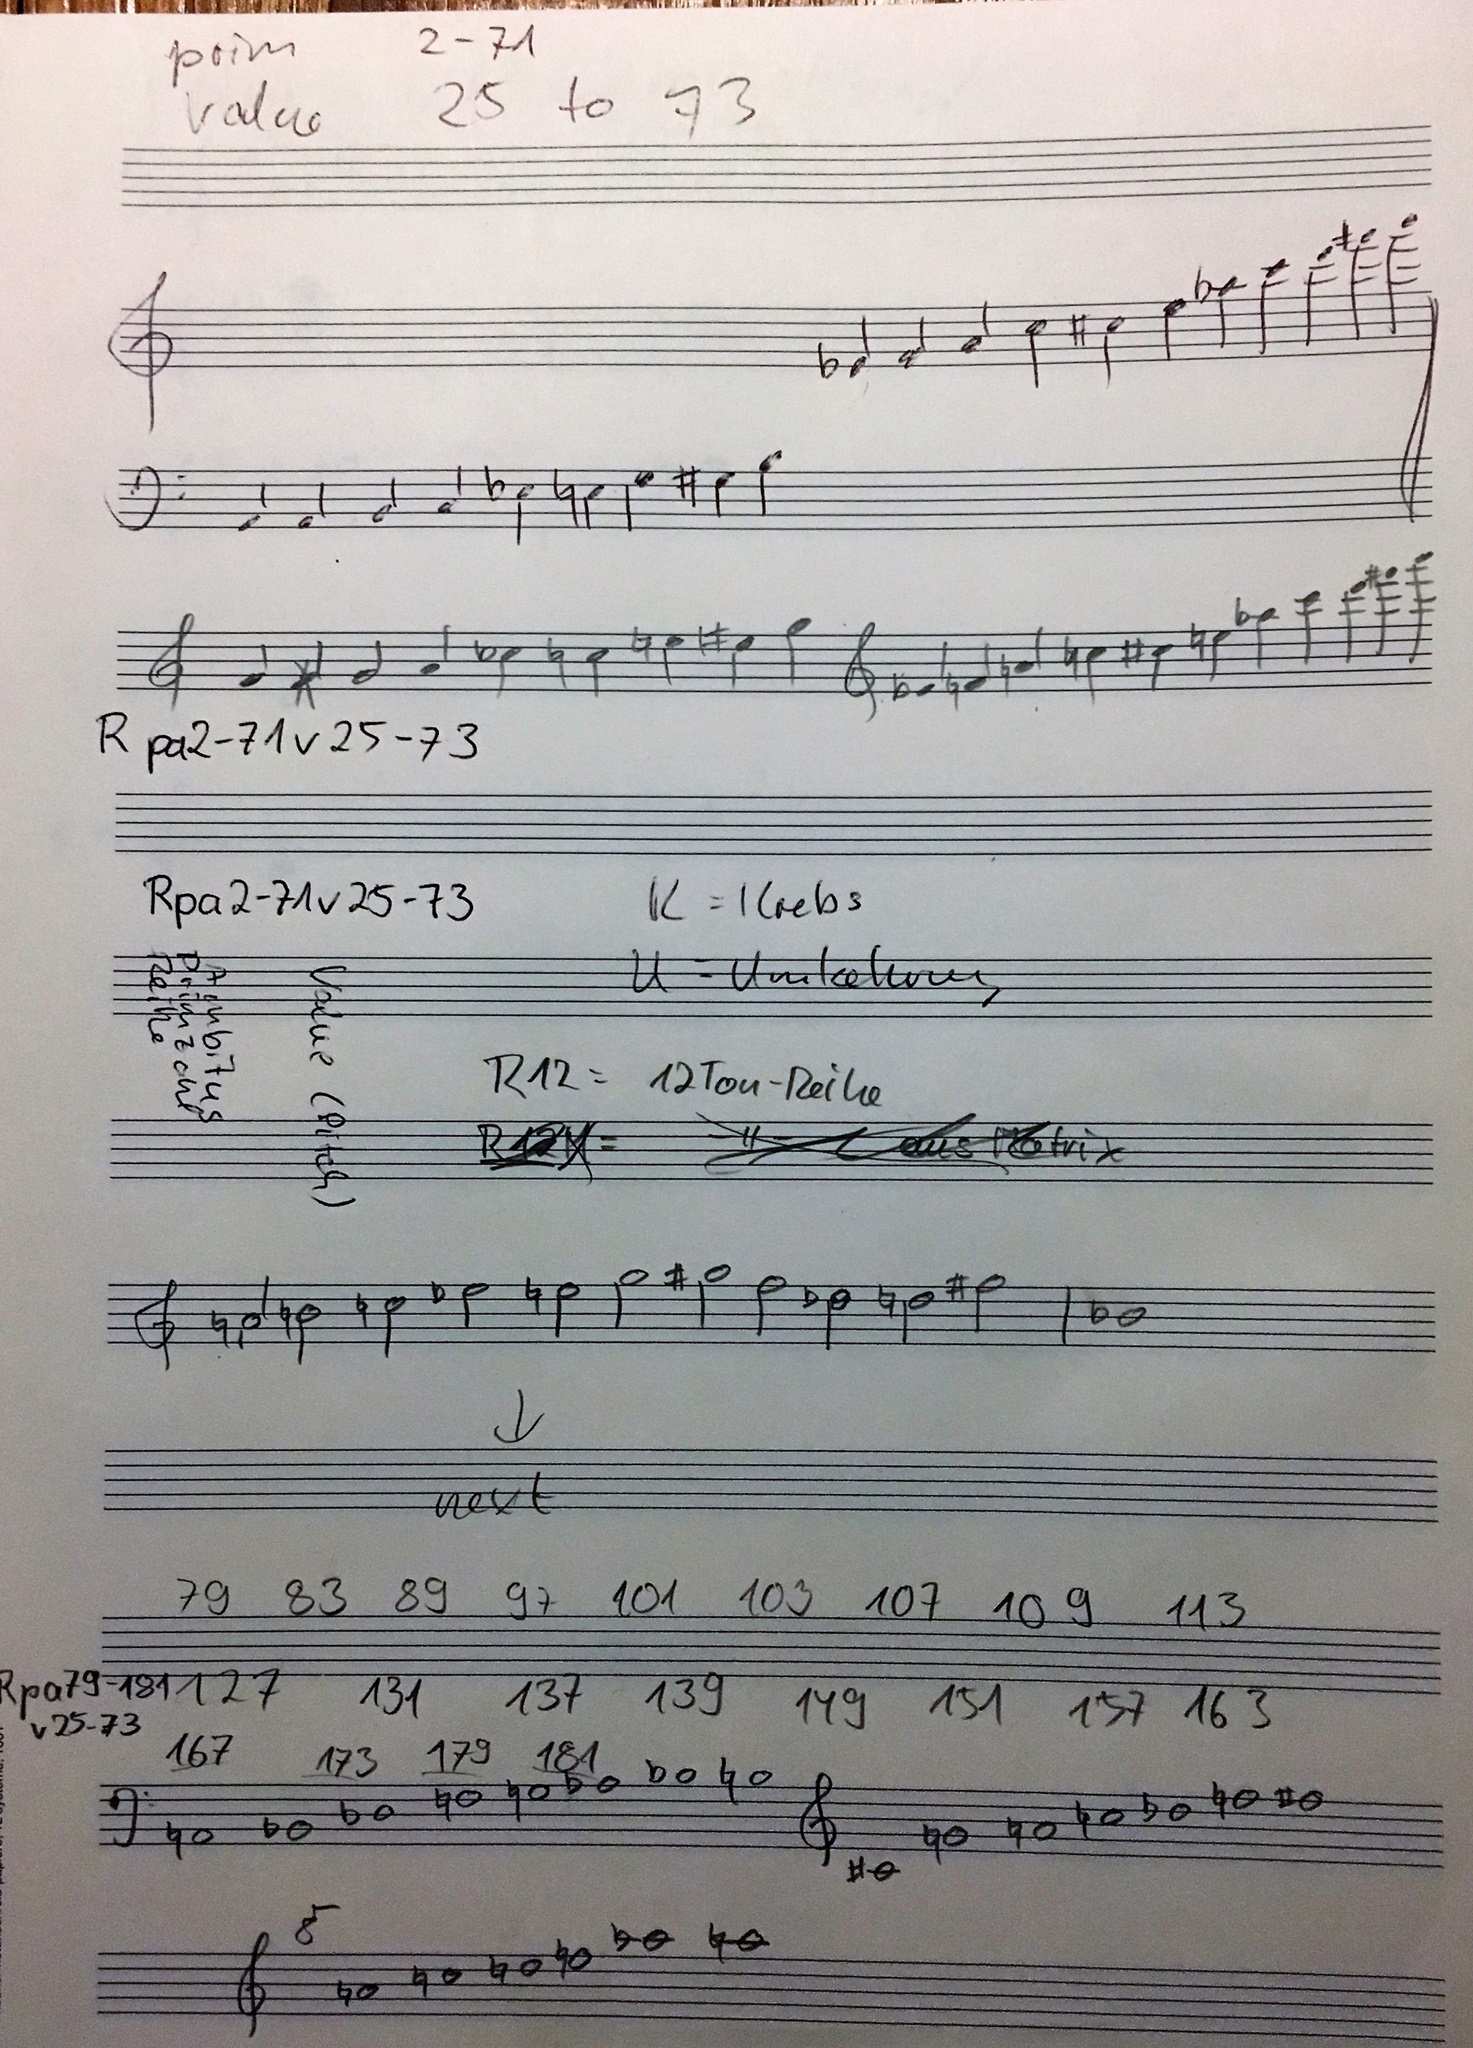 prim 2-71
value 25 to 73
R pa2-71v25-73
Rpa2-71v25-73 K = Krebs
U = Umkehrung
Reihe
Primzahl
Ambitus
Value (Pitch)
R12 = 12Ton-Reihe
= -"- aus Matrix
↓
next
79 83 89 97 101 103 107 109 113
Rpa79-181 127 131 137 139 149 151 157 163
v25-73
167 173 179 181
8